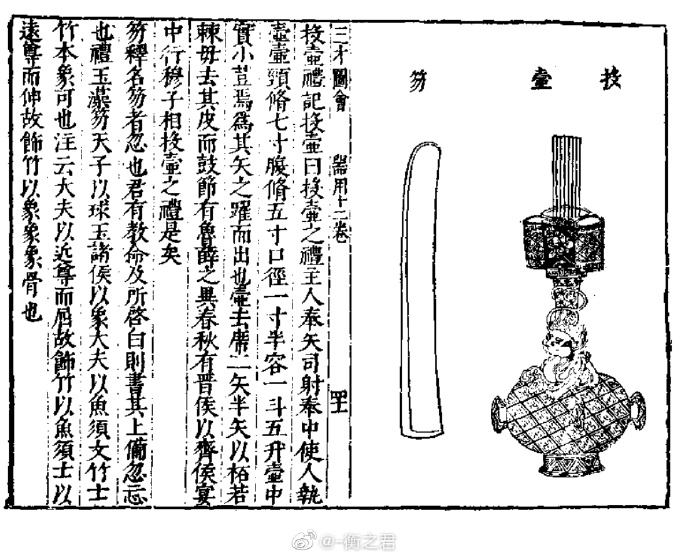 投壺
笏
三才圖會 器用十二卷
投壺禮記投壺曰投壺之禮主人奉矢司射奉中使人執
壺壺頸脩七寸腹脩五寸口徑一寸半容一斗五升壺中
實小荳焉為其矢之躍而出也壺去席二矢半矢以柘若
棘毋去其皮而鼓節有魯薛之異春秋有晋侯以齊侯宴
中行穆子相投壺之禮是矣
笏釋名笏者忽也君有教命及所啓曰則書其上備忽忘
也禮玉藻笏天子以球玉諸侯以象大夫以魚須文竹士
竹本象可也注云大夫以近尊而屈故飾竹以魚須士以
遠尊而伸故飾竹以象象象骨也
@-衡之君